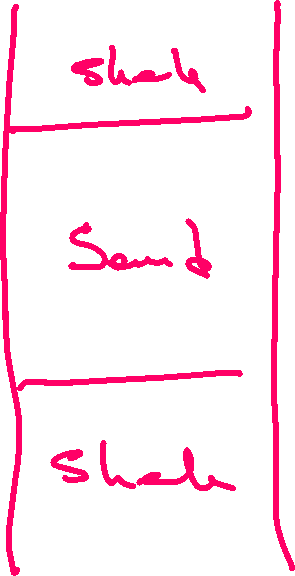 Shale
Sand
Shale